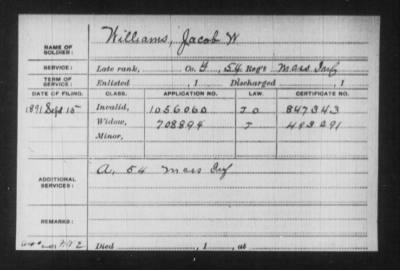 NAME OF SOLDIER: Williams, Jacob W.
SERVICE: Late rank, Co. F, 54 Reg't Mass Inf
TERM OF SERVICE: Enlisted , 1 Discharged , 1
DATE OF FILING. CLASS. APPLICATION NO. LAW. CERTIFICATE NO.
1891 Sept 15 Invalid, 1056060 847343
Widow, 708894 493291
Minor,
ADDITIONAL SERVICES: A, 54 Mass Inf
REMARKS:
Died , 1 , at